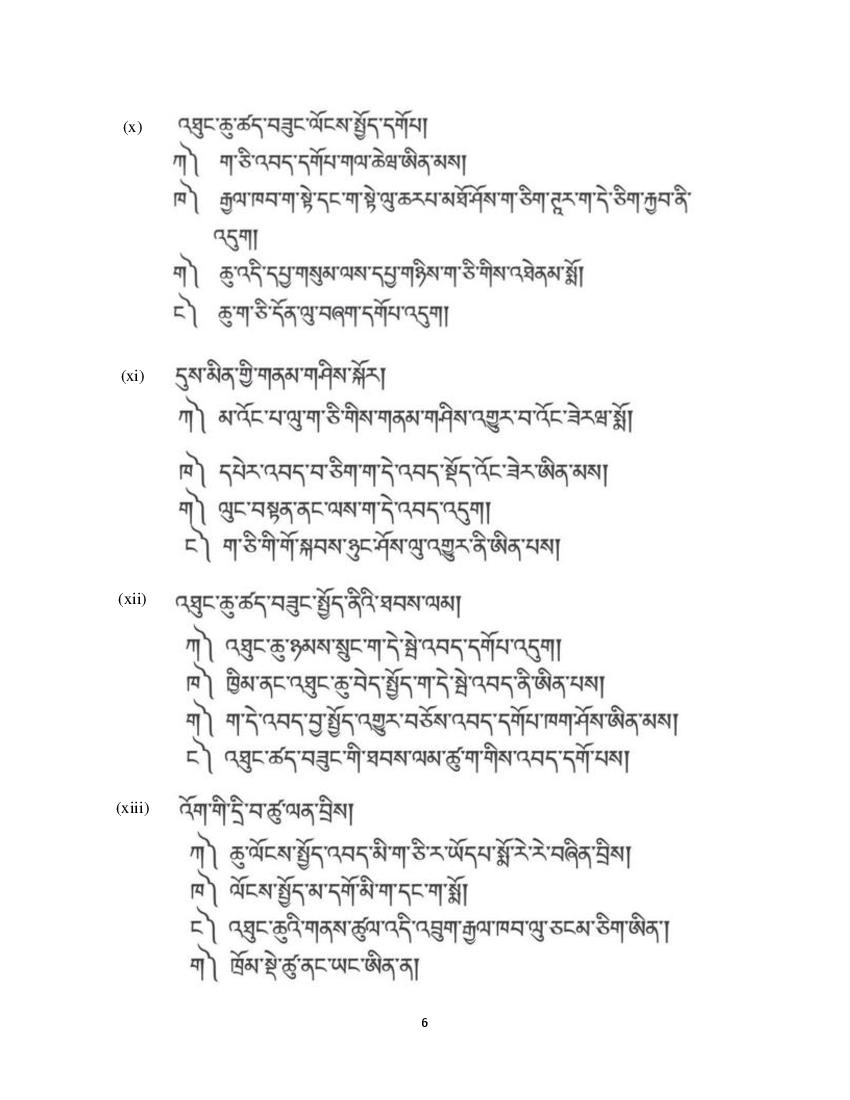 (x) འཐུང་ཆུ་ཚད་བཟུང་ལོངས་སྤྱོད་དགོཔ།
ཀ༽ ག་ཅི་འབད་དགོཔ་གལ་ཆེཝ་ཨིན་མས།
ཁ༽ རྒྱལ་ཁབ་ག་སྟེ་དང་ག་སྟེ་ལུ་ཆརཔ་མཐོ་ཤོས་ག་ཅིག་ཊར་ག་དེ་ཅིག་རྐྱབ་ནི་
འདུག།
ག༽ ཆུ་འདི་དཔྱ་གསུམ་ལས་དཔྱ་གཉིས་ག་ཅི་གིས་འཐེནམ་སྨོ།
ང༽ ཆུ་ག་ཅི་དོན་ལུ་བཞག་དགོཔ་འདུག།
(xi) དུས་མིན་གྱི་གནམ་གཤིས་སྐོར།
ཀ༽ མ་འོང་པ་ལུ་ག་ཅི་གིས་གནམ་གཤིས་འགྱུར་བ་འོང་ཟེརཝ་སྨོ།
ཁ༽ དཔེར་འབད་བ་ཅིག་ག་དེ་འབད་སྡོད་འོང་ཟེར་ཨིན་མས།
ག༽ ལུང་བསྟན་ནང་ལས་ག་དེ་འབད་འདུག།
ང༽ ག་ཅི་གི་གོ་སྐབས་ཉུང་ཤོས་ལུ་འགྱུར་ནི་ཨིན་པས།
(xii) འཐུང་ཆུ་ཚད་བཟུང་སྤྱོད་ནིའི་ཐབས་ལམ།
ཀ༽ འཐུང་ཆུ་ཉམས་སྲུང་ག་དེ་སྦེ་འབད་དགོཔ་འདུག།
ཁ༽ ཁྱིམ་ནང་འཐུང་ཆུ་བེད་སྤྱོད་ག་དེ་སྦེ་འབད་ནི་ཨིན་པས།
ག༽ ག་དེ་འབད་བྱ་སྤྱོད་འགྱུར་བཅོས་འབད་དགོཔ་ཁག་ཤོས་ཨིན་མས།
ང༽ འཐུང་ཚད་བཟུང་གི་ཐབས་ལམ་ཚུ་ག་གིས་འབད་དགོ་པས།
(xiii) འོག་གི་དྲི་བ་ཚུ་ལན་བྲིས།
ཀ༽ ཆུ་ལོངས་སྤྱོད་འབད་མི་ག་ཅི་ར་ཡོདཔ་སྨོ་རེ་རེ་བཞིན་བྲིས།
ཁ༽ ལོངས་སྤྱོད་མ་དགོ་མི་ག་དང་ག་སྨོ།
ང༽ འཐུང་ཆུའི་གནས་ཚུལ་འདི་འབྲུག་རྒྱལ་ཁབ་ལུ་ཅངམ་ཅིག་ཨིན་།
ག༽ ཁྲོམ་སྡེ་ཚུ་ནང་ཡང་ཨིན་ན།
6